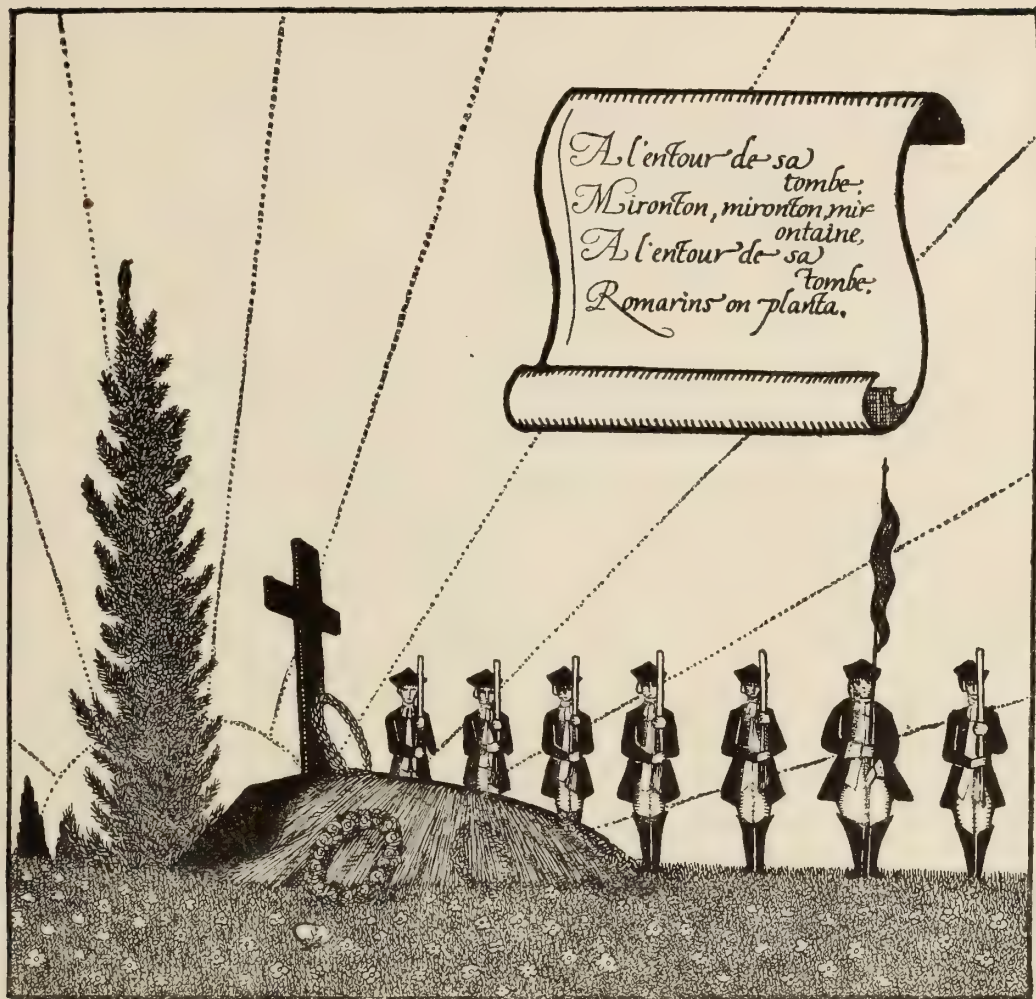 A l'entour de sa
tombe.
Mironton, mironton, mir-
ontaine,
A l'entour de sa
tombe.
Romarins on planta.